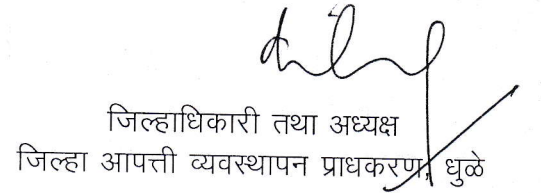 जिल्हाधिकारी तथा अध्यक्ष
जिल्हा आपत्ती व्यवस्थापन प्राधकरण, धुळे